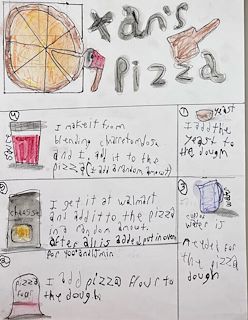 xan's
pizza
Sauce
I make it from
blending
and I add it to the
pizza (I add a random amout)
①
yeast
I add the
yeast to
the dough
cheese
I get it at walmart
and add it to the pizza
in a random amout.
after all is added put in oven
for
water is
needed for
the pizza
dough
②
pizza
I add pizza flour to
the dough